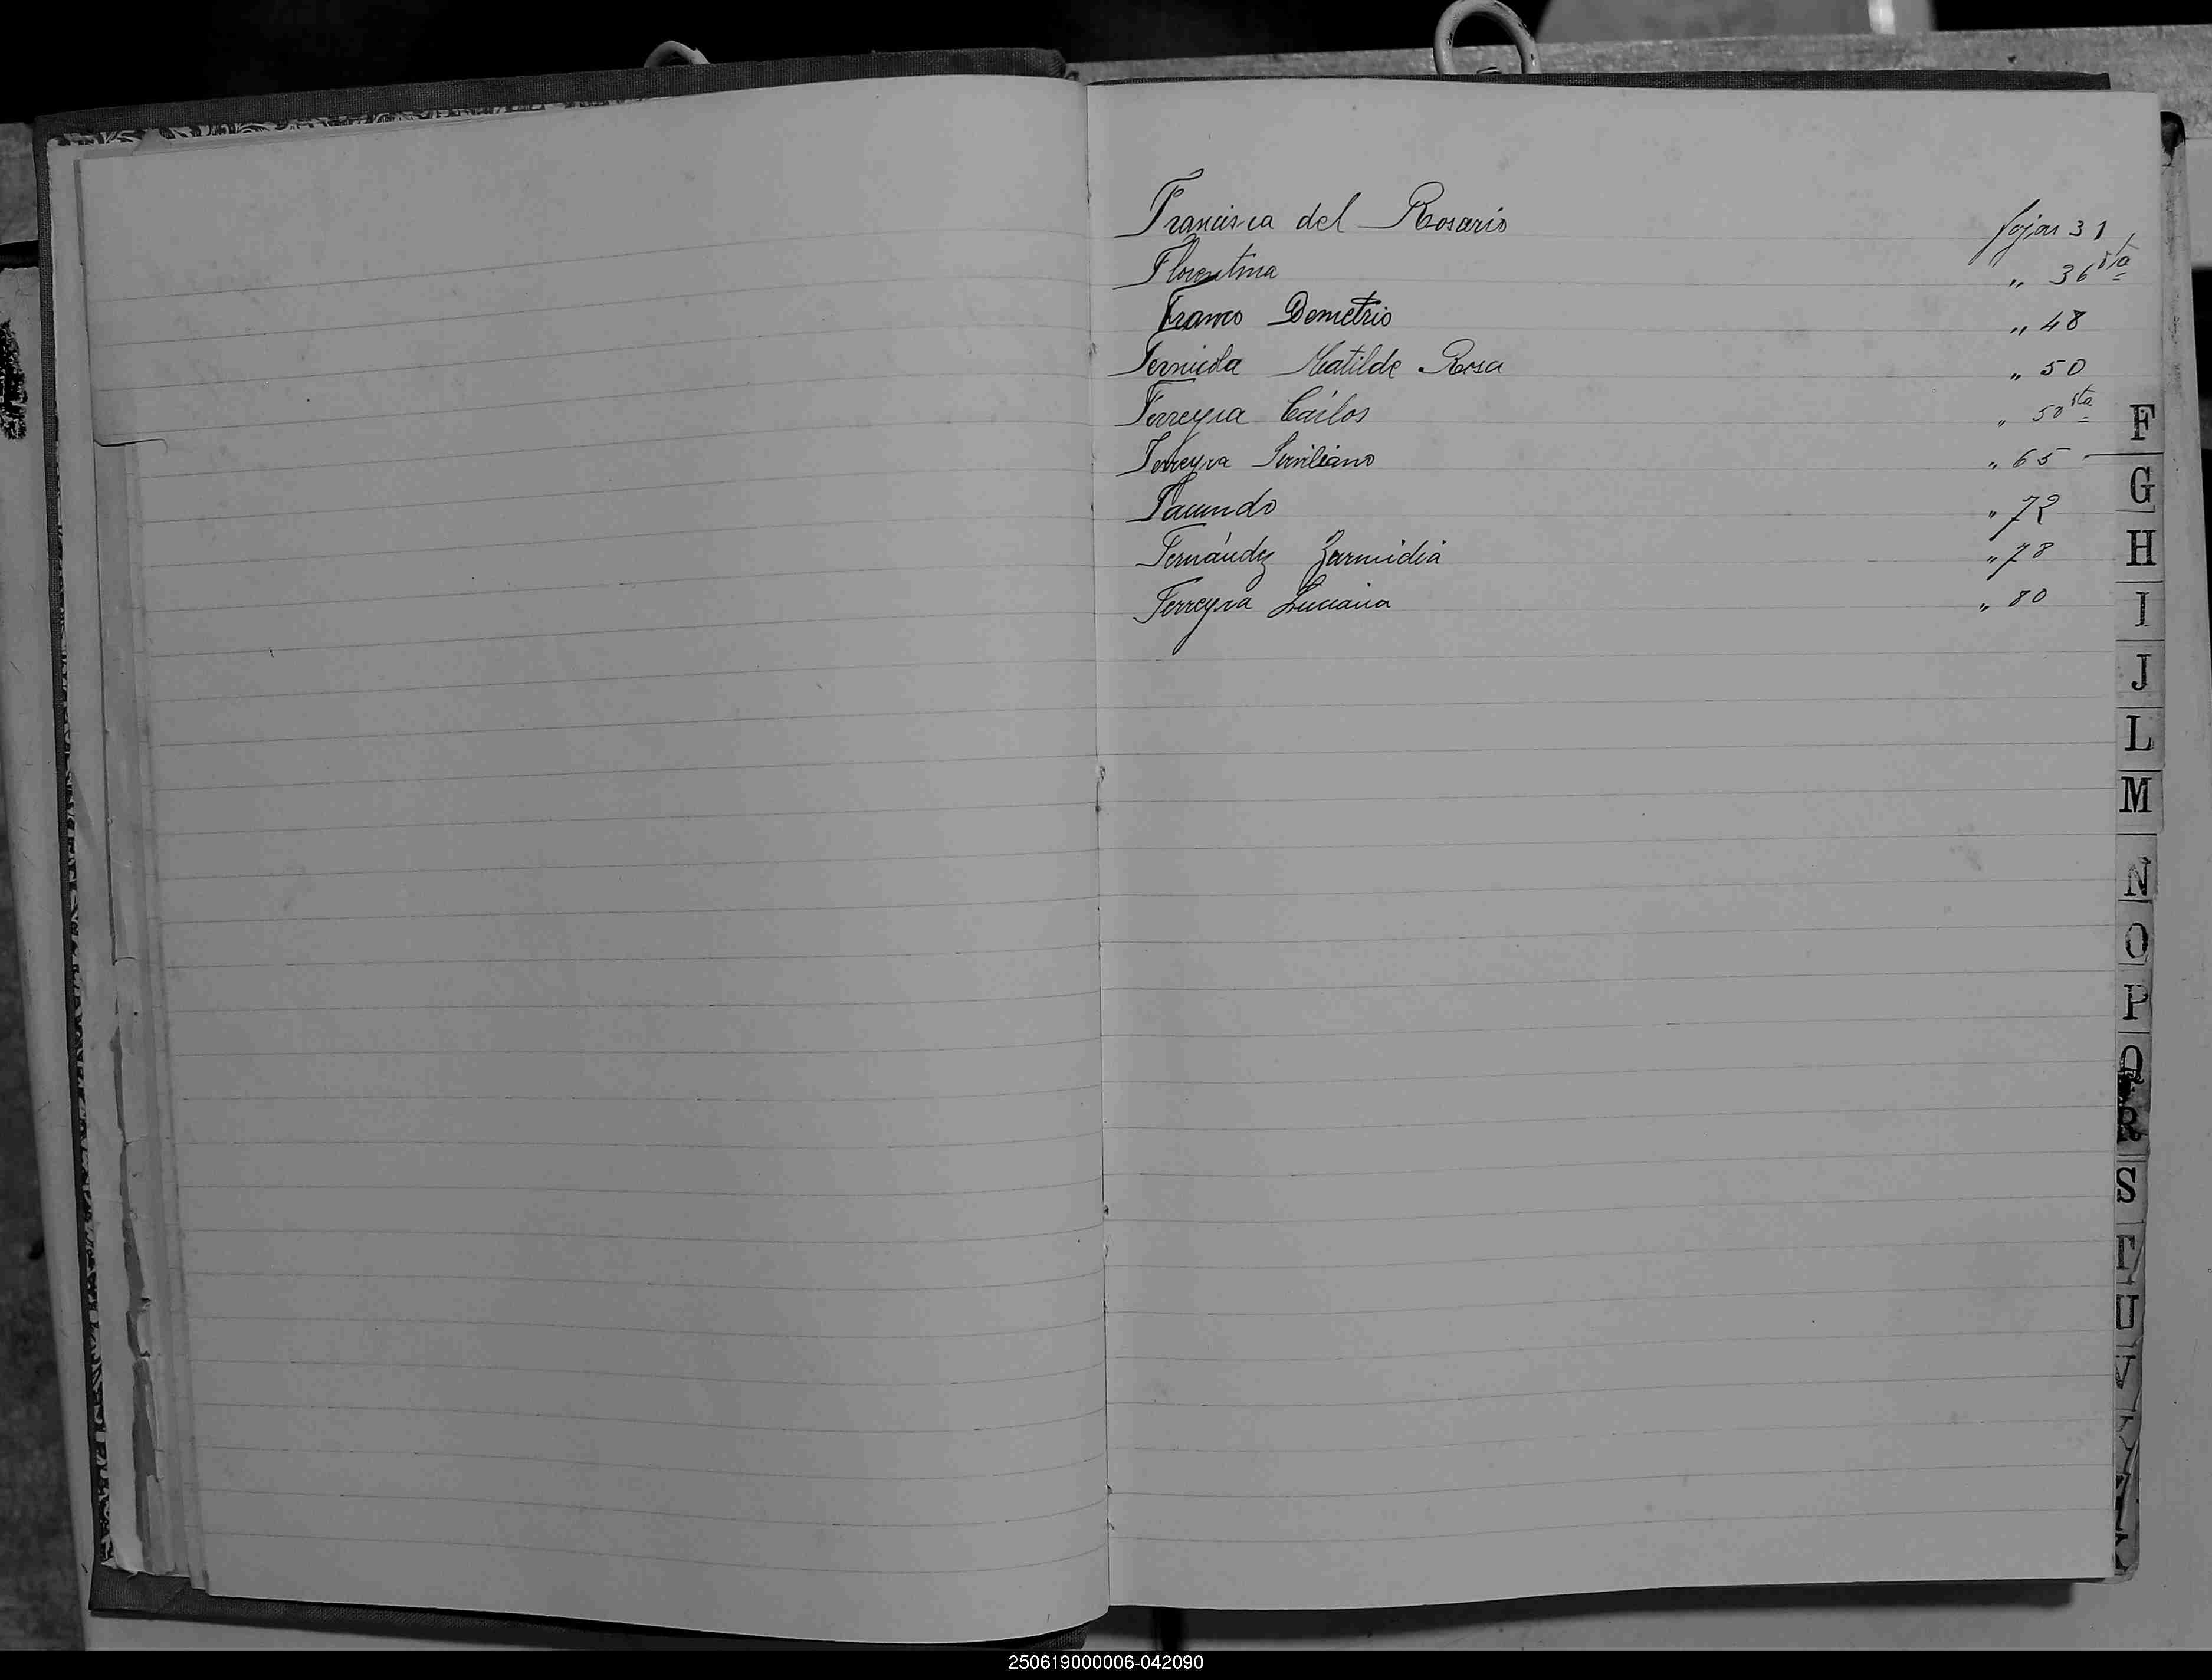 Francisca del Rosario fojas 31
Florentina " 36 vta
Franco Demetrio " 48
Fernicola Matilde Rosa " 50
Ferreyra Carlos " 50 vta
Ferreyra Serviliano " 65
Facundo " 72
Fernández Zarmidia " 78
Ferreyra Luciana " 80
F
G
H
I
J
L
M
N
O
P
Q
R
S
T
U
V
Y
250619000006-042090